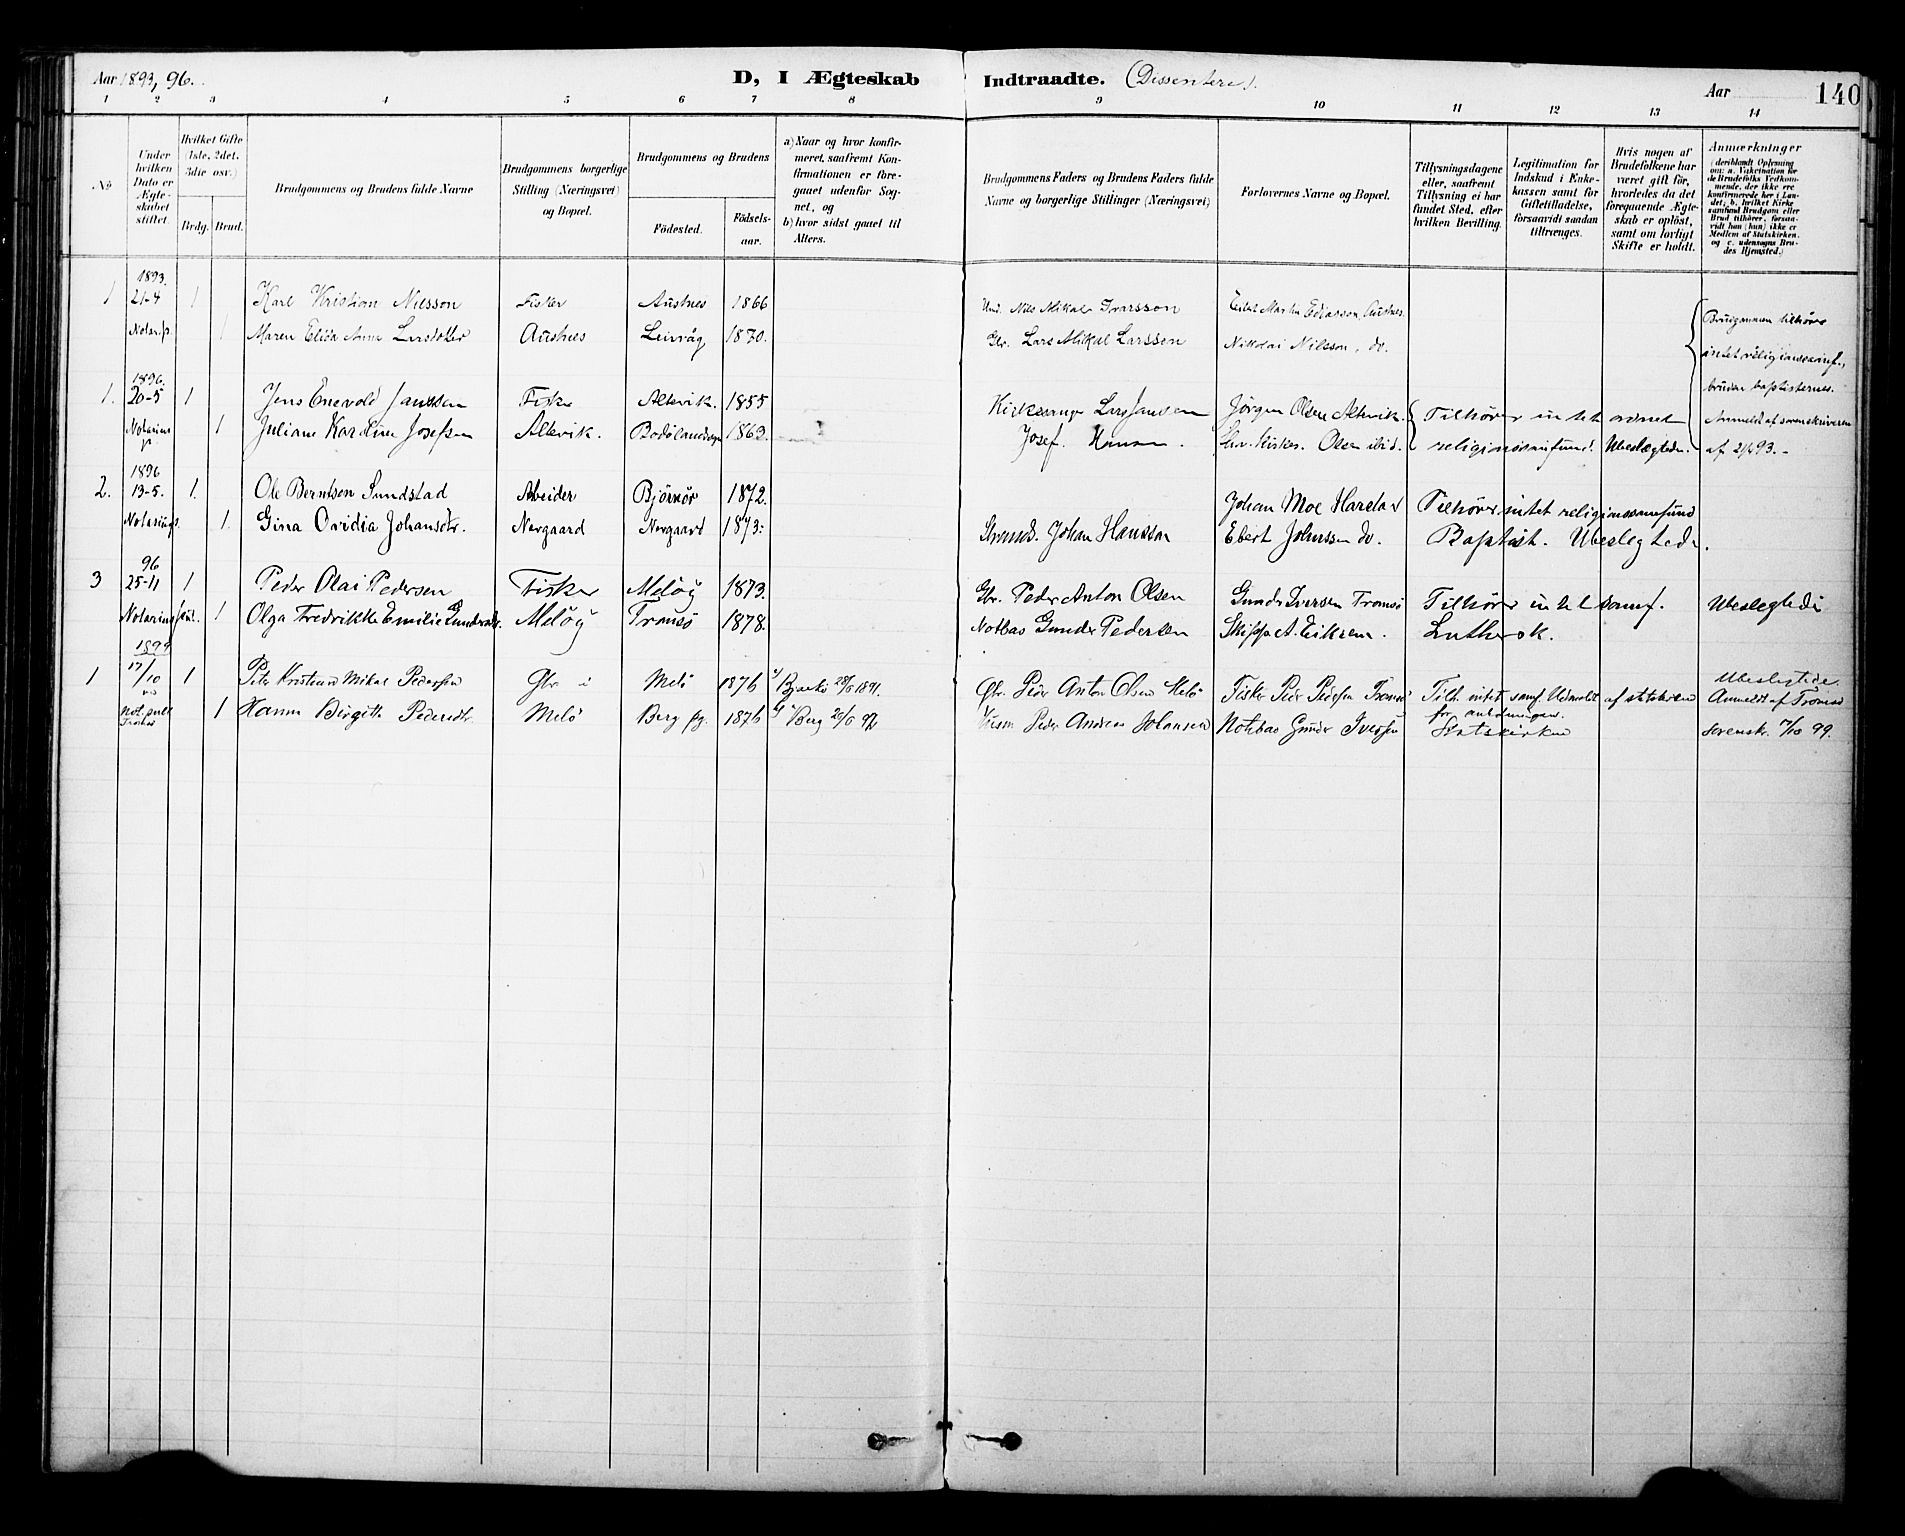 Aar 1893, 96.
D, I Ægteskab Indtraadte. (Dissentere).
Aar
140
1 2 3 4 5 6 7 8 9 10 11 12 13 14
№
Under hvilken Dato er Ægteskabet stiftet.
Hvilket Gifte (1ste, 2det, 3die osv.)
Brdg. Brud.
Brudgommens og Brudens fulde Navne
Brudgommens borgerlige Stilling (Næringsvei) og Bopæl.
Brudgommens og Brudens
Fødested. Fødselsaar.
a) Naar og hvor konfirmeret, saafremt Konfirmationen er foregaaet udenfor Sognet, og
b) hvor sidst gaaet til Alters.
Brudgommens Faders og Brudens Faders fulde Navne og borgerlige Stillinger (Næringsvei)
Forlovernes Navne og Bopæl.
Tillysningsdagene eller, saafremt Tillysning ei har fundet Sted, efter hvilken Bevilling.
Legitimation for Indskud i Enkekassen samt for Giftetilladelse, forsaavidt saadan tiltrænges.
Hvis nogen af Brudefolkene har været gift før, hvorledes da det foregaaende Ægteskab er opløst, samt om lovligt Skifte er holdt.
Anmærkninger
(deriblandt Oplysning om: a. Vaccination for de Brudefolks Vedkommende, der ikke ere konfirmerede her i Landet; b. hvilket Kirkesamfund Brudgom eller Brud tilhører, forsaavidt han (hun) ikke er Medlem af Statskirken, og c. udensogns Brudes Hjemsted.)
1 1893. 21-4 1 Karl Kristian Nilsson Fisker Austnes 1866 Nils Mikal Ivarsson Martin Austnes.
Notar. p. 1 Maren Elisa Anna Larsdatter Austnes Leirvåg 1870. Gbr. Lars Mikal Larssen Nikolai Nilsson, do.
Brudgommen tilhører
intet religionssamf.,
bruden baptisternes.
Anmeldt af sorenskriveren
af 21/4 93. -
1. 1896. 20-5 1 Jens Enevold Janssen Fisker Altevik. 1855 Kirkesanger Lars Janssen Jørgen Olsen Altevik. Tilhører intet ordnet
Notarius p. 1 Juliane Karoline Josefsen Altevik. Bodølandsogn 1863. Josef Hansen. Olsen ibid. religionssamfund. Ubeslægtede.
2. 1896 13-5. 1. Ole Berntsen Sundstad Arbeider Bjørnør 1872. Johan Moe Harstad Tilhører intet religionssamfund
Notarius p. 1. Gina Ovidia Johansdtr. Nergaard Nergaard 1873. Strands. Johan Hansson Ebert Johnssen do. Baptist. Ubeslegtede.
3 96 25-11 1 Peder Olai Pedersen Fisker Meløy 1873. Gbr. Peder Anton Olsen Gunder Iversen Tromsø Tilhører intet samf. Ubeslegtede
Notarius pub. 1 Olga Fredrikke Emilie Gundersdr. Meløy Tromsø 1878. Notbas Gunder Pedersen Skipper A. Eriksen. Luthersk.
1899
1 17/10 1 Peter Kristian Mikal Pedersen Gbr i Melø 1876 Bjarkø 28/6 1891. Gbr. Peder Anton Olsen Melø Fisker Peder Pedersen Tromsø Tilh. intet samf. Udmeldt af statskirken Ubeslegtede.
for anledningen. Anmeldt af Tromsø
Not. publ. Tromsø 1 Hanna Birgitte Pedersdtr. Melø Berg pg. 1876 Berg 26/6 92 Peder Andreas Johansen Notebas Gunder Iversen Statskirken Sorenskr. 17/10 99.